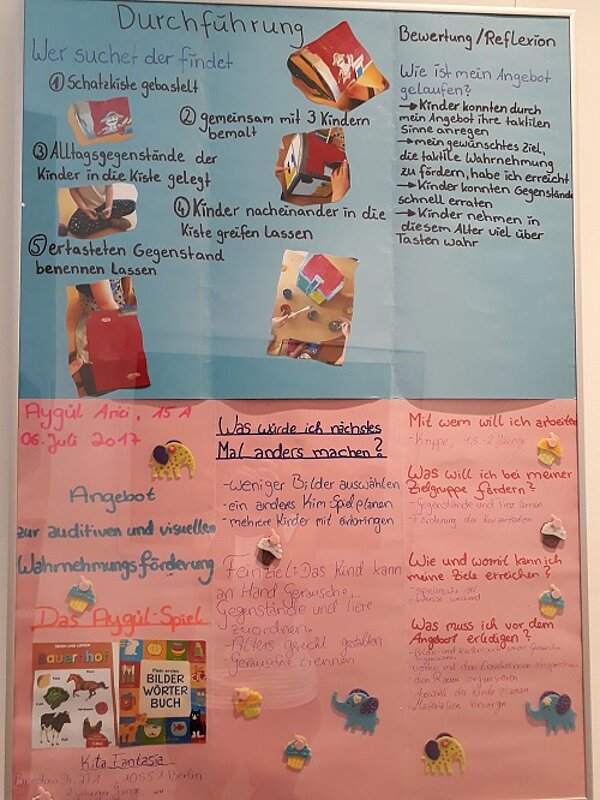 Durchführung
Wer suchet der findet
① Schatzkiste gebastelt
② gemeinsam mit 3 Kindern
bemalt
③ Alltagsgegenstände der
Kinder in die Kiste gelegt
④ Kinder nacheinander in die
Kiste greifen lassen
⑤ ertasteten Gegenstand
benennen lassen
Bewertung/Reflexion
Wie ist mein Angebot
gelaufen?
→ Kinder konnten durch
mein Angebot ihre taktilen
Sinne anregen
→ mein gewünschtes Ziel,
die taktile Wahrnehmung
zu fördern, habe ich erreicht
→ Kinder konnten Gegenstände
schnell erraten
→ Kinder nehmen in
diesem Alter viel über
Tasten wahr
Aygül Arici, 15 A
06. Juli 2017
Angebot
zur auditiven und visuellen
Wahrnehmungsförderung
Das Aygül-Spiel
Bauernhof
Mein erstes
BILDER
WÖRTER
BUCH
Kita Fantasia
10551 Berlin
Was würde ich nächstes
Mal anders machen?
-weniger Bilder auswählen
-ein anderes Kim Spiel planen
-mehrere Kinder mit einbringen
Feinziel: Das Kind kann
an Hand Geräusche,
Gegenstände und Tiere
zuordnen.
-Alters gerecht gestalten
Geräusche trennen
Mit wem will ich arbeiten
-Krippe, 1,5-2 Jährige
Was will ich bei meiner
Zielgruppe fördern?
-Gegenstände und Tiere lernen
-Förderung der Konzentration
Wie und womit kann ich
meine Ziele erreichen?
Was muss ich vor dem
Angebot erledigen?
den Raum organisieren
-Material besorgen